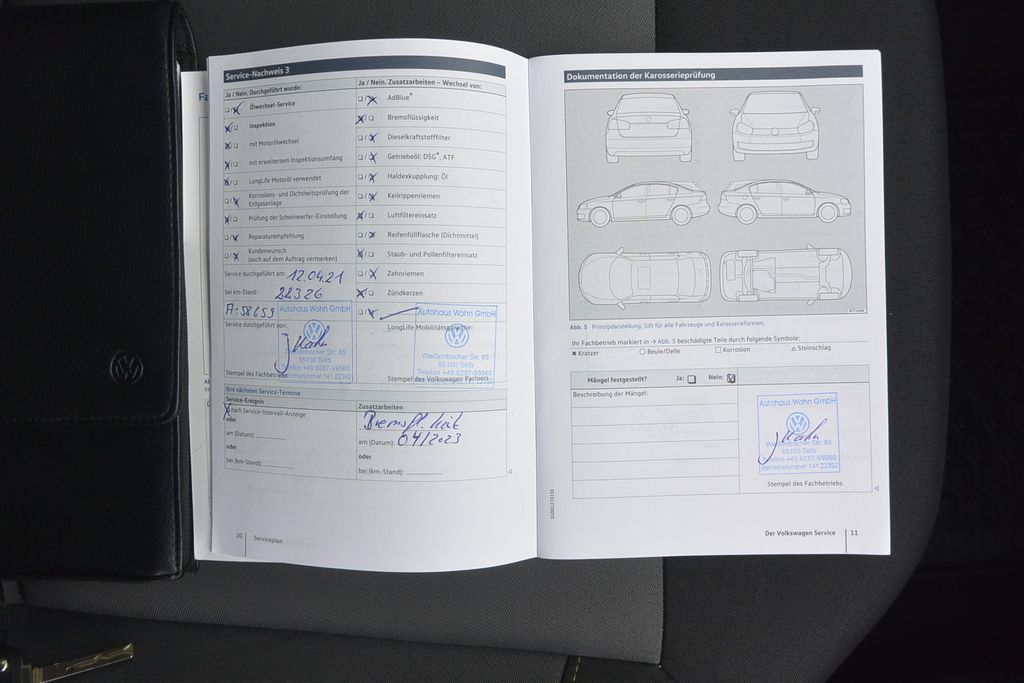 Service-Nachweis 3
Ja / Nein. Durchgeführt wurde:
Ölwechsel-Service
Inspektion
mit Motorölwechsel
mit erweitertem Inspektionsumfang
LongLife Motoröl verwendet
Korrosions- und Dichtheitsprüfung der
Erdgasanlage
Prüfung der Scheinwerfer-Einstellung
Reparaturempfehlung
Kundenwunsch
(auch auf dem Auftrag vermerken)
Service durchgeführt am: 12.04.21
bei km-Stand: 22326
A: 58653
Service durchgeführt von:
Autohaus Wohn GmbH
Weißenbacher Str. 85
95100 Selb
Telefon +49 9287-99560
Betriebsnummer 141 22302
Stempel des Fachbetriebs
Ja / Nein. Zusatzarbeiten – Wechsel von:
AdBlue®
Bremsflüssigkeit
Dieselkraftstofffilter
Getriebeöl: DSG®, ATF
Haldexkupplung: Öl
Keilrippenriemen
Luftfiltereinsatz
Reifenfüllflasche (Dichtmittel)
Staub- und Pollenfiltereinsatz
Zahnriemen
Zündkerzen
Autohaus Wohn GmbH
LongLife Mobilitätsgarantie:
Weißenbacher Str. 85
95100 Selb
Telefon +49 9287-99560
Betriebsnummer 141 22302
Stempel des Volkswagen Partners
Ihre nächsten Service-Termine
Service-Ereignis
Nach Service-Intervall-Anzeige
oder
am (Datum):
oder
bei (km-Stand):
Zusatzarbeiten
am (Datum): 04/2023
oder
bei (km-Stand):
10
Serviceplan
Dokumentation der Karosserieprüfung
Abb. 5 Prinzipdarstellung. Gilt für alle Fahrzeuge und Karosserieformen.
Ihr Fachbetrieb markiert in → Abb. 5 beschädigte Teile durch folgende Symbole:
Kratzer
Beule/Delle
Korrosion
Steinschlag
Mängel festgestellt? Ja: Nein:
Beschreibung der Mängel:
Autohaus Wohn GmbH
Weißenbacher Str. 85
95100 Selb
Telefon +49 9287-99560
Betriebsnummer 141 22302
Stempel des Fachbetriebs
Der Volkswagen Service
11